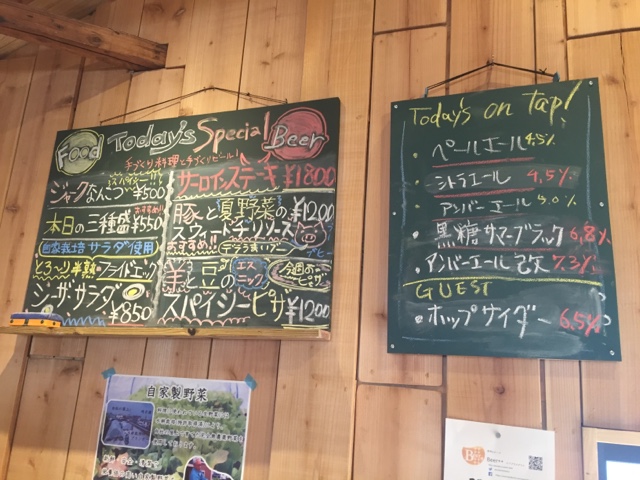 Today's Special
Food
Beer
手づくり料理と手づくりビール!
ジャークなんこつ ¥500
本日の三種盛 ¥550
自家栽培サラダ使用
とろ〜り半熟フライドエッグ
シーザーサラダ ¥850
サーロインステーキ ¥1800
豚と夏野菜の ¥1200
スウィートチリソース
おすすめ!!
羊と豆の エスニック
今週のピザ
スパイシーピザ ¥1200
Today's on Tap!
ペールエール 4.5%
シトラエール 4.5%
アンバーエール 5.0%
黒糖サマーブラック 6.8%
アンバーエール改 7.3%
GUEST
ホップサイダー 6.5%
自家製野菜